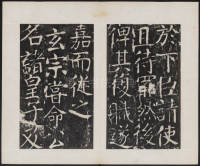 於下但請使
且待罪然後
俾其復職遂
嘉而從之
玄宗嘗命公
名諸皇子及